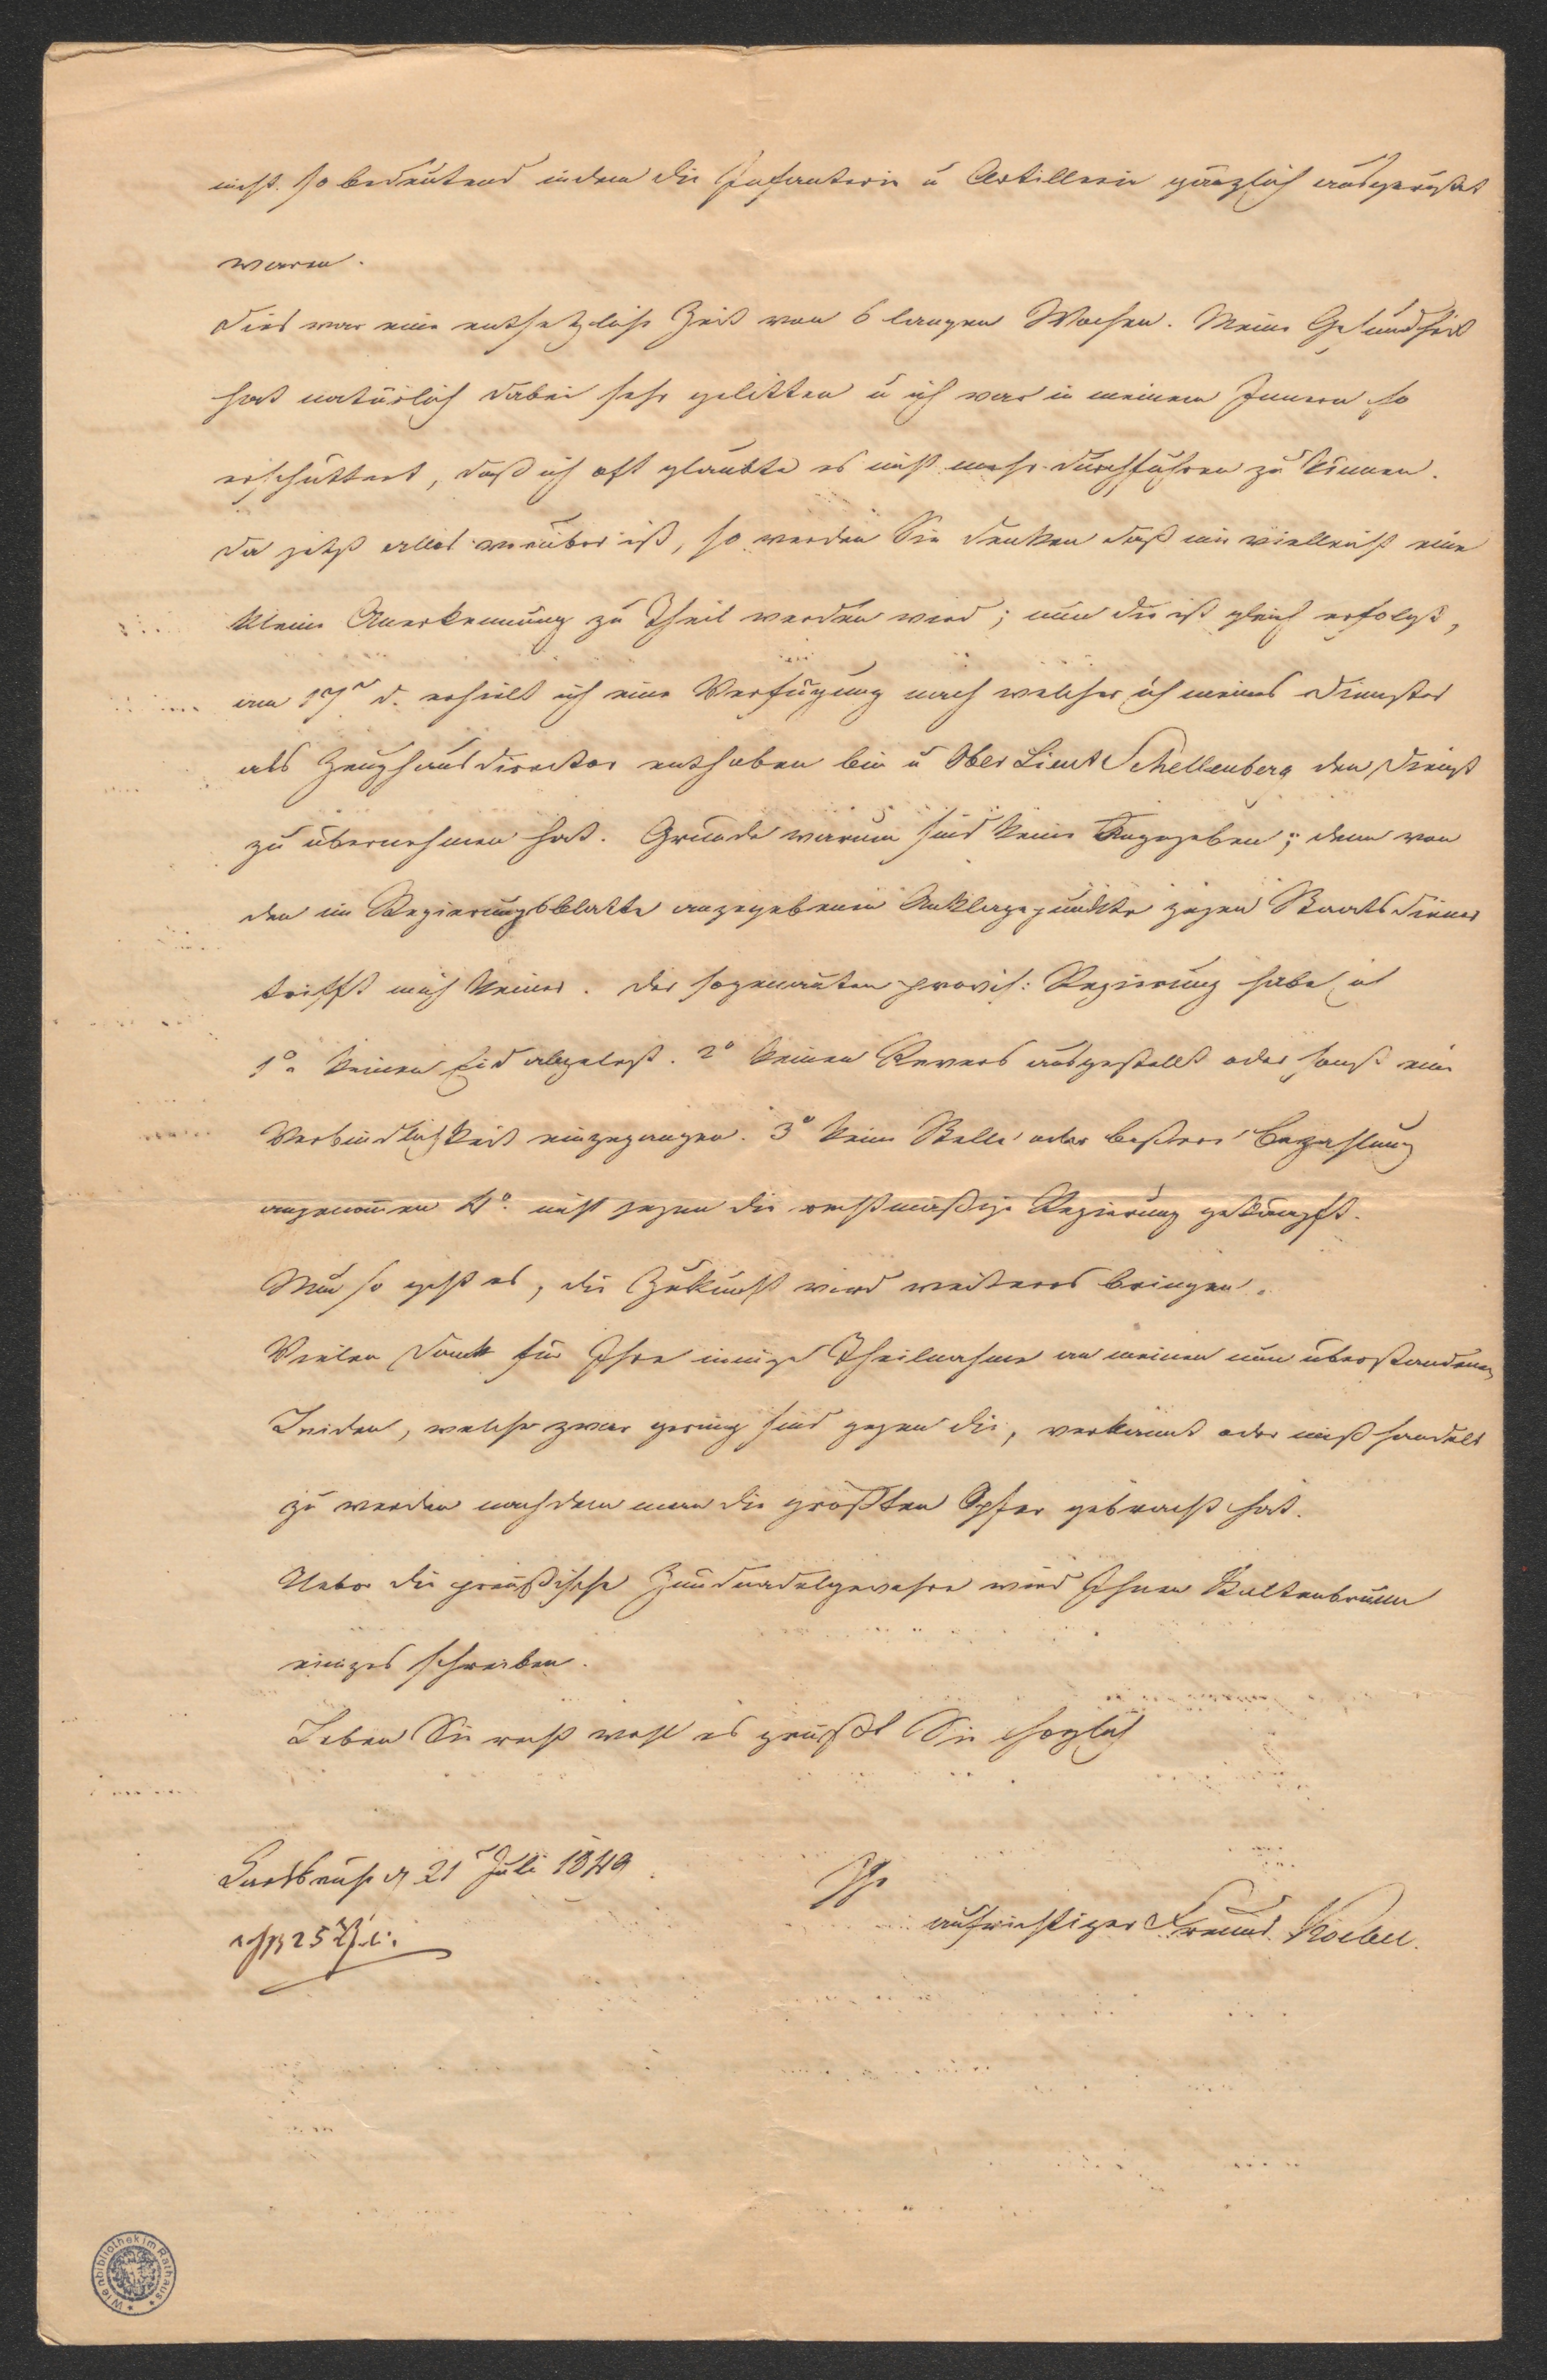 nicht so bedeutend indem die Infanterie u Artillerie gänzlich ausgerüstet
waren.
Dies war eine entsetzliche Zeit von 6 langen Wochen. Meine Gesundheit
hat natürlich dabei sehr gelitten u ich war in meinem Innern so
erschüttert, daß ich oft glaubte es nicht mehr durchführen zu können.
Da jetzt alles vorüber ist, so werden Sie denken daß mir vielleicht eine
kleine Anerkennung zu Theil werden wird; nun die ist gleich erfolgt,
am 17n d. erhielt ich eine Verfügung nach welcher ich meines Dienstes
als Zeughausdirector enthoben bin u Ober Lieut Schellenberg den Dienst
zu übernehmen hat. Gründe warum sind keine angegeben; denn von
den im Regierungsblatte angegebenen Anklagepunkte gegen Staatsdiener
trifft mich keiner. Der sogenanten provis: Regierung habe ich
1o keinen Eid abgelegt. 2o keinen Revers ausgestellt oder sonst eine
Verbindlichkeit eingegangen. 3o keine Stelle oder bessere Bezahlung
angenomen 4o. nicht gegen die rechtmäßige Regierung gekämpft.
Nun so geht es, die Zukunft wird weiteres bringen.
Vielen Dank für Ihre innige Theilnahme an meinen nun überstandenen
Leiden, welche zwar gering sind gegen die, verkannt oder mißhandelt
zu werden nachdem man die größten Opfer gebracht hat.
Ueber die preußische Zündnadelgewehre wird Ihnen Kaltenbrunn
einiges schreiben.
Leben Sie recht wohl es grüßt Sie herzlich
Carlsruhe d 21 Juli 1849
Ihr
aufrichtiger Freund Koebel.
25
Wienbibliothek im Rathaus